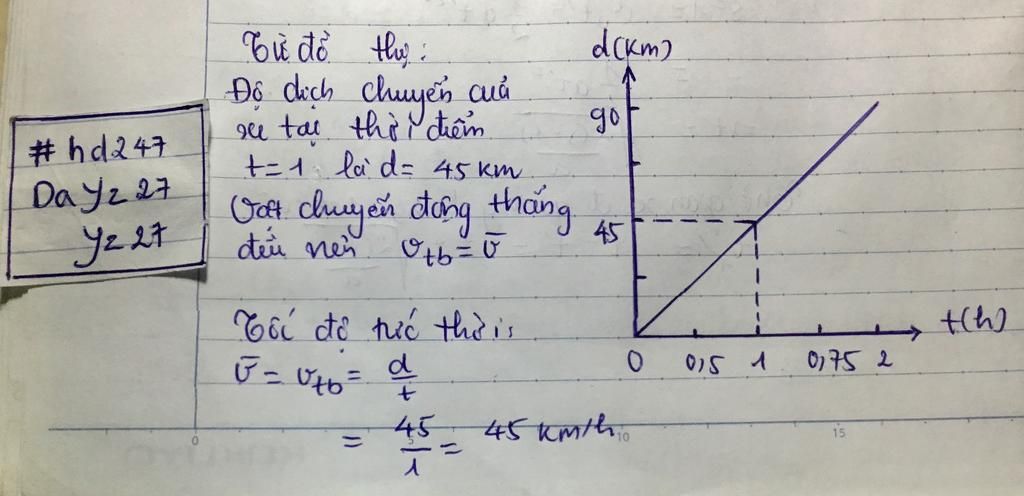 # hd247
Dayz27
yz27
Từ đồ thị:
Độ dịch chuyển của
xe tại thời điểm
t=1 là d= 45 km
Vật chuyển động thẳng
đều nên v_tb = v̄
Tốc độ tức thời:
v̄ = v_tb = d/t
= 45/1 = 45 km/h
d(km)
90
45
0 0,5 1 0,75 2 t(h)
0 10 15